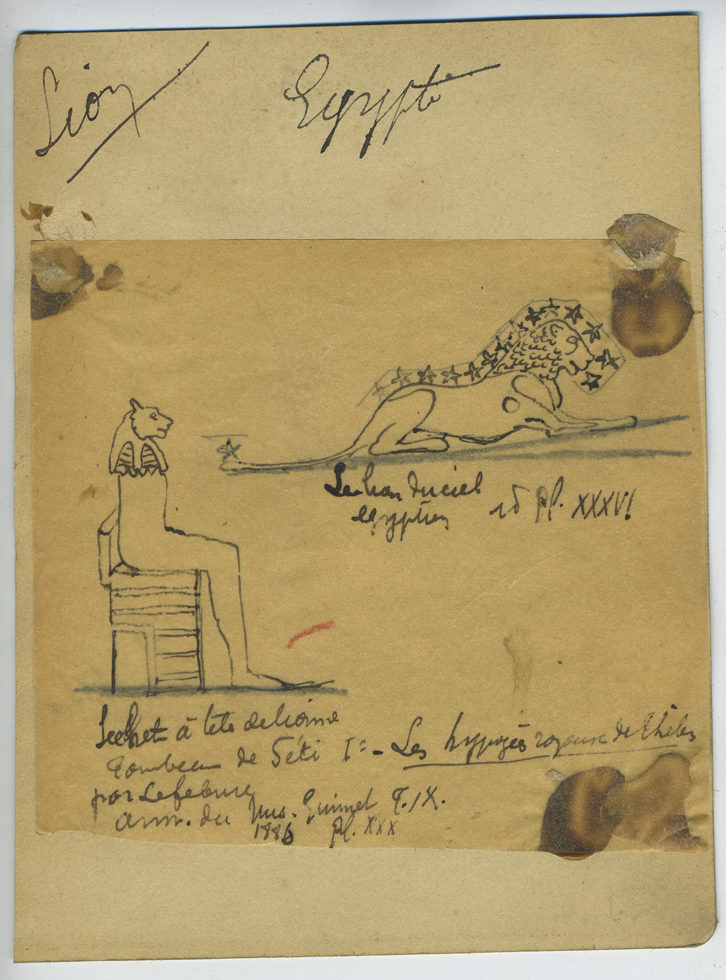 Lion
Egypte
Le lion du ciel
egyptien
id Pl. XXXVI
Sekhet à tête de lionne
Tombeau de Séti Ier - Les hypogés royaux de Thèbes
par Lefebure
Ann. du Mus. Guimet T. IX.
1886 Pl. XXX